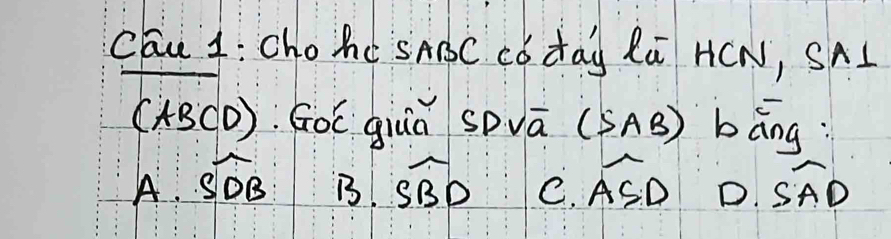 Câu 1: Cho hc SABC có đáy là HCN, SA⊥
(ABCD). Góc giữa SD và (SAB) bằng:
A. \widehat{SDB} B. \widehat{SBD} C. \widehat{ASD} D. \widehat{SAD}